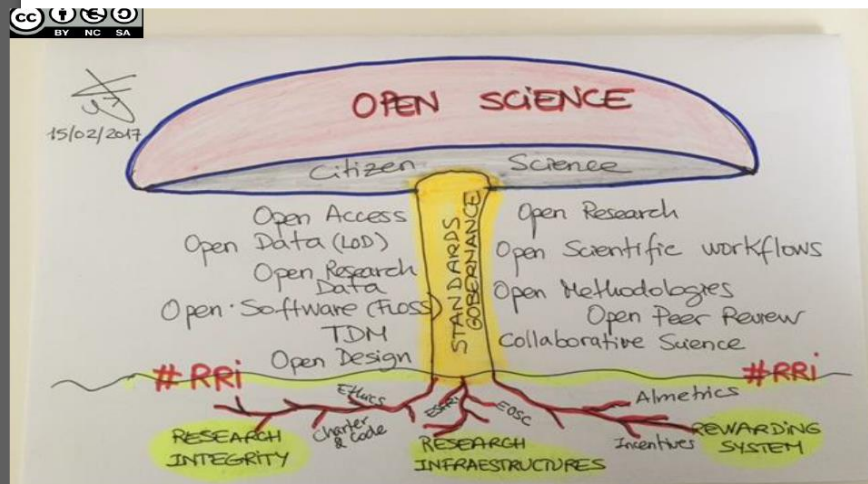 cc
BY NC SA
15/02/2017
OPEN SCIENCE
Citizen Science
Open Access
Open Data (LOD)
Open Research
Data
Open Software (FLOSS)
TDM
Open Design
STANDARDS
GOBERNANCE
Open Research
Open Scientific workflows
Open Methodologies
Open Peer Review
Collaborative Science
#RRi
#RRi
Ethics
Charter
& Code
ESFRI
EOSC
Almetrics
Incentives
RESEARCH
INTEGRITY
RESEARCH
INFRAESTRUCTURES
REWARDING
SYSTEM